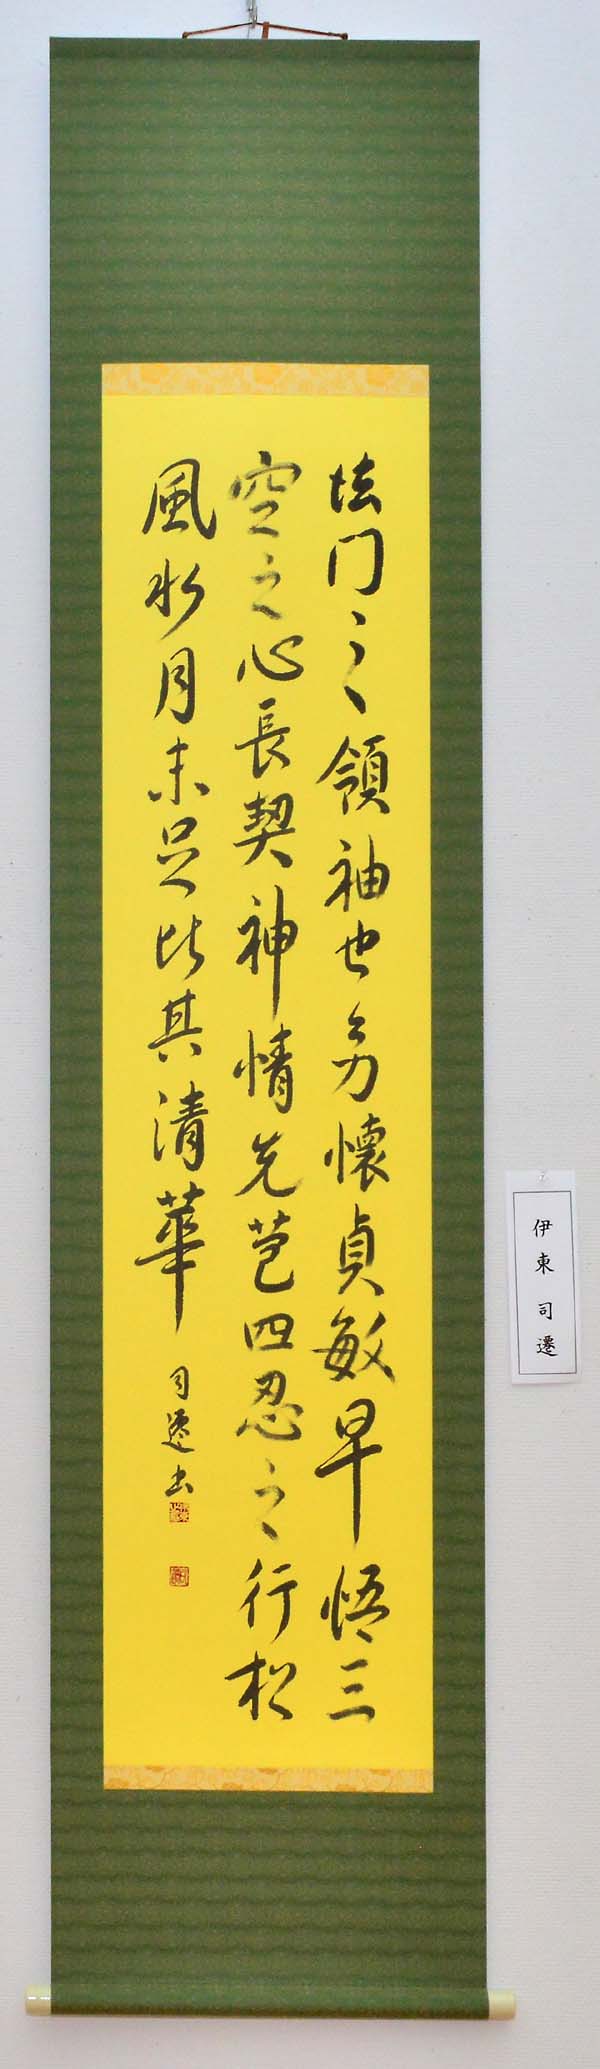 法門之領袖也幼懷貞敏早悟三
空之心長契神情先苞四忍之行松
風水月未足比其清華
司遷書
伊東司遷